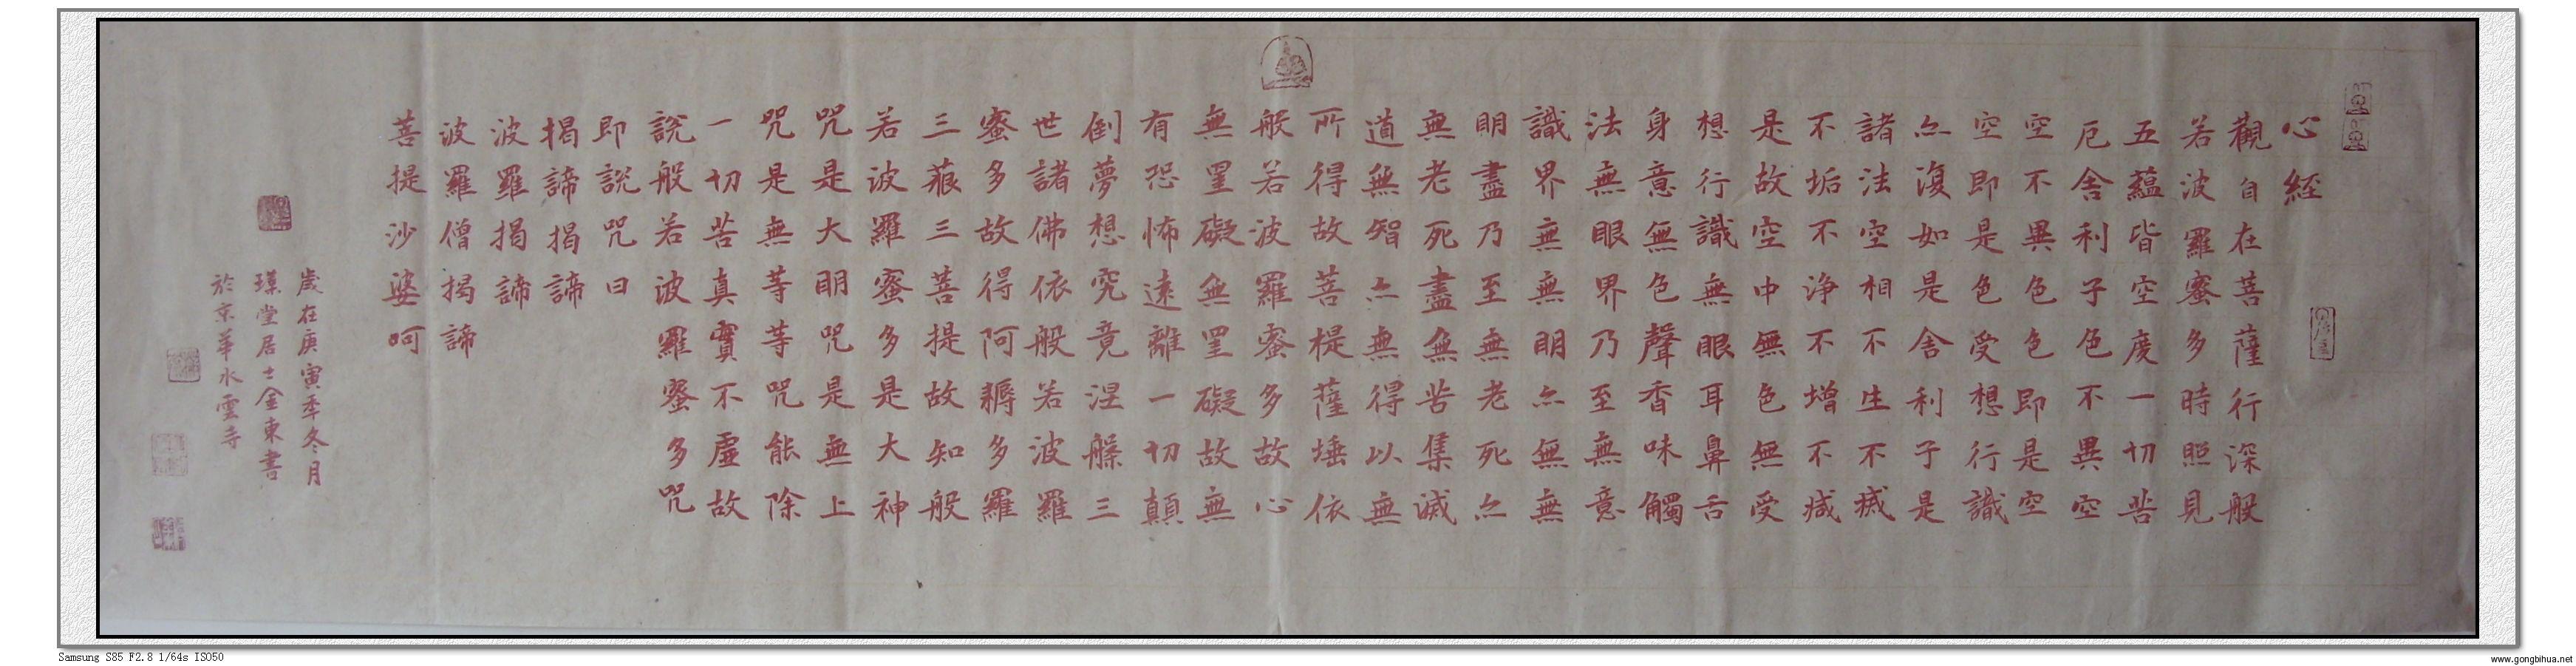 心経
觀自在菩薩行深般
若波羅蜜多時照見
五蘊皆空度一切苦
厄舍利子色不異空
空不異色色即是空
空即是色受想行識
亦復如是舍利子是
諸法空相不生不滅
不垢不淨不增不減
是故空中無色無受
想行識無眼耳鼻舌
身意無色聲香味觸
法無眼界乃至無意
識界無無明亦無無
明盡乃至無老死亦
無老死盡無苦集滅
道無智亦無得以無
所得故菩提薩埵依
般若波羅蜜多故心
無罣礙無罣礙故無
有恐怖遠離一切顛
倒夢想究竟涅槃三
世諸佛依般若波羅
蜜多故得阿耨多羅
三藐三菩提故知般
若波羅蜜多是大神
咒是大明咒是無上
咒是無等等咒能除
一切苦真實不虛故
說般若波羅蜜多咒
即說咒曰
揭諦揭諦
波羅揭諦
波羅僧揭諦
菩提沙婆呵
歲在庚寅季冬月
堂居士金東書
於京華水雲寺
Samsung S85 F2.8 1/64s ISO50
www.gongbihua.net